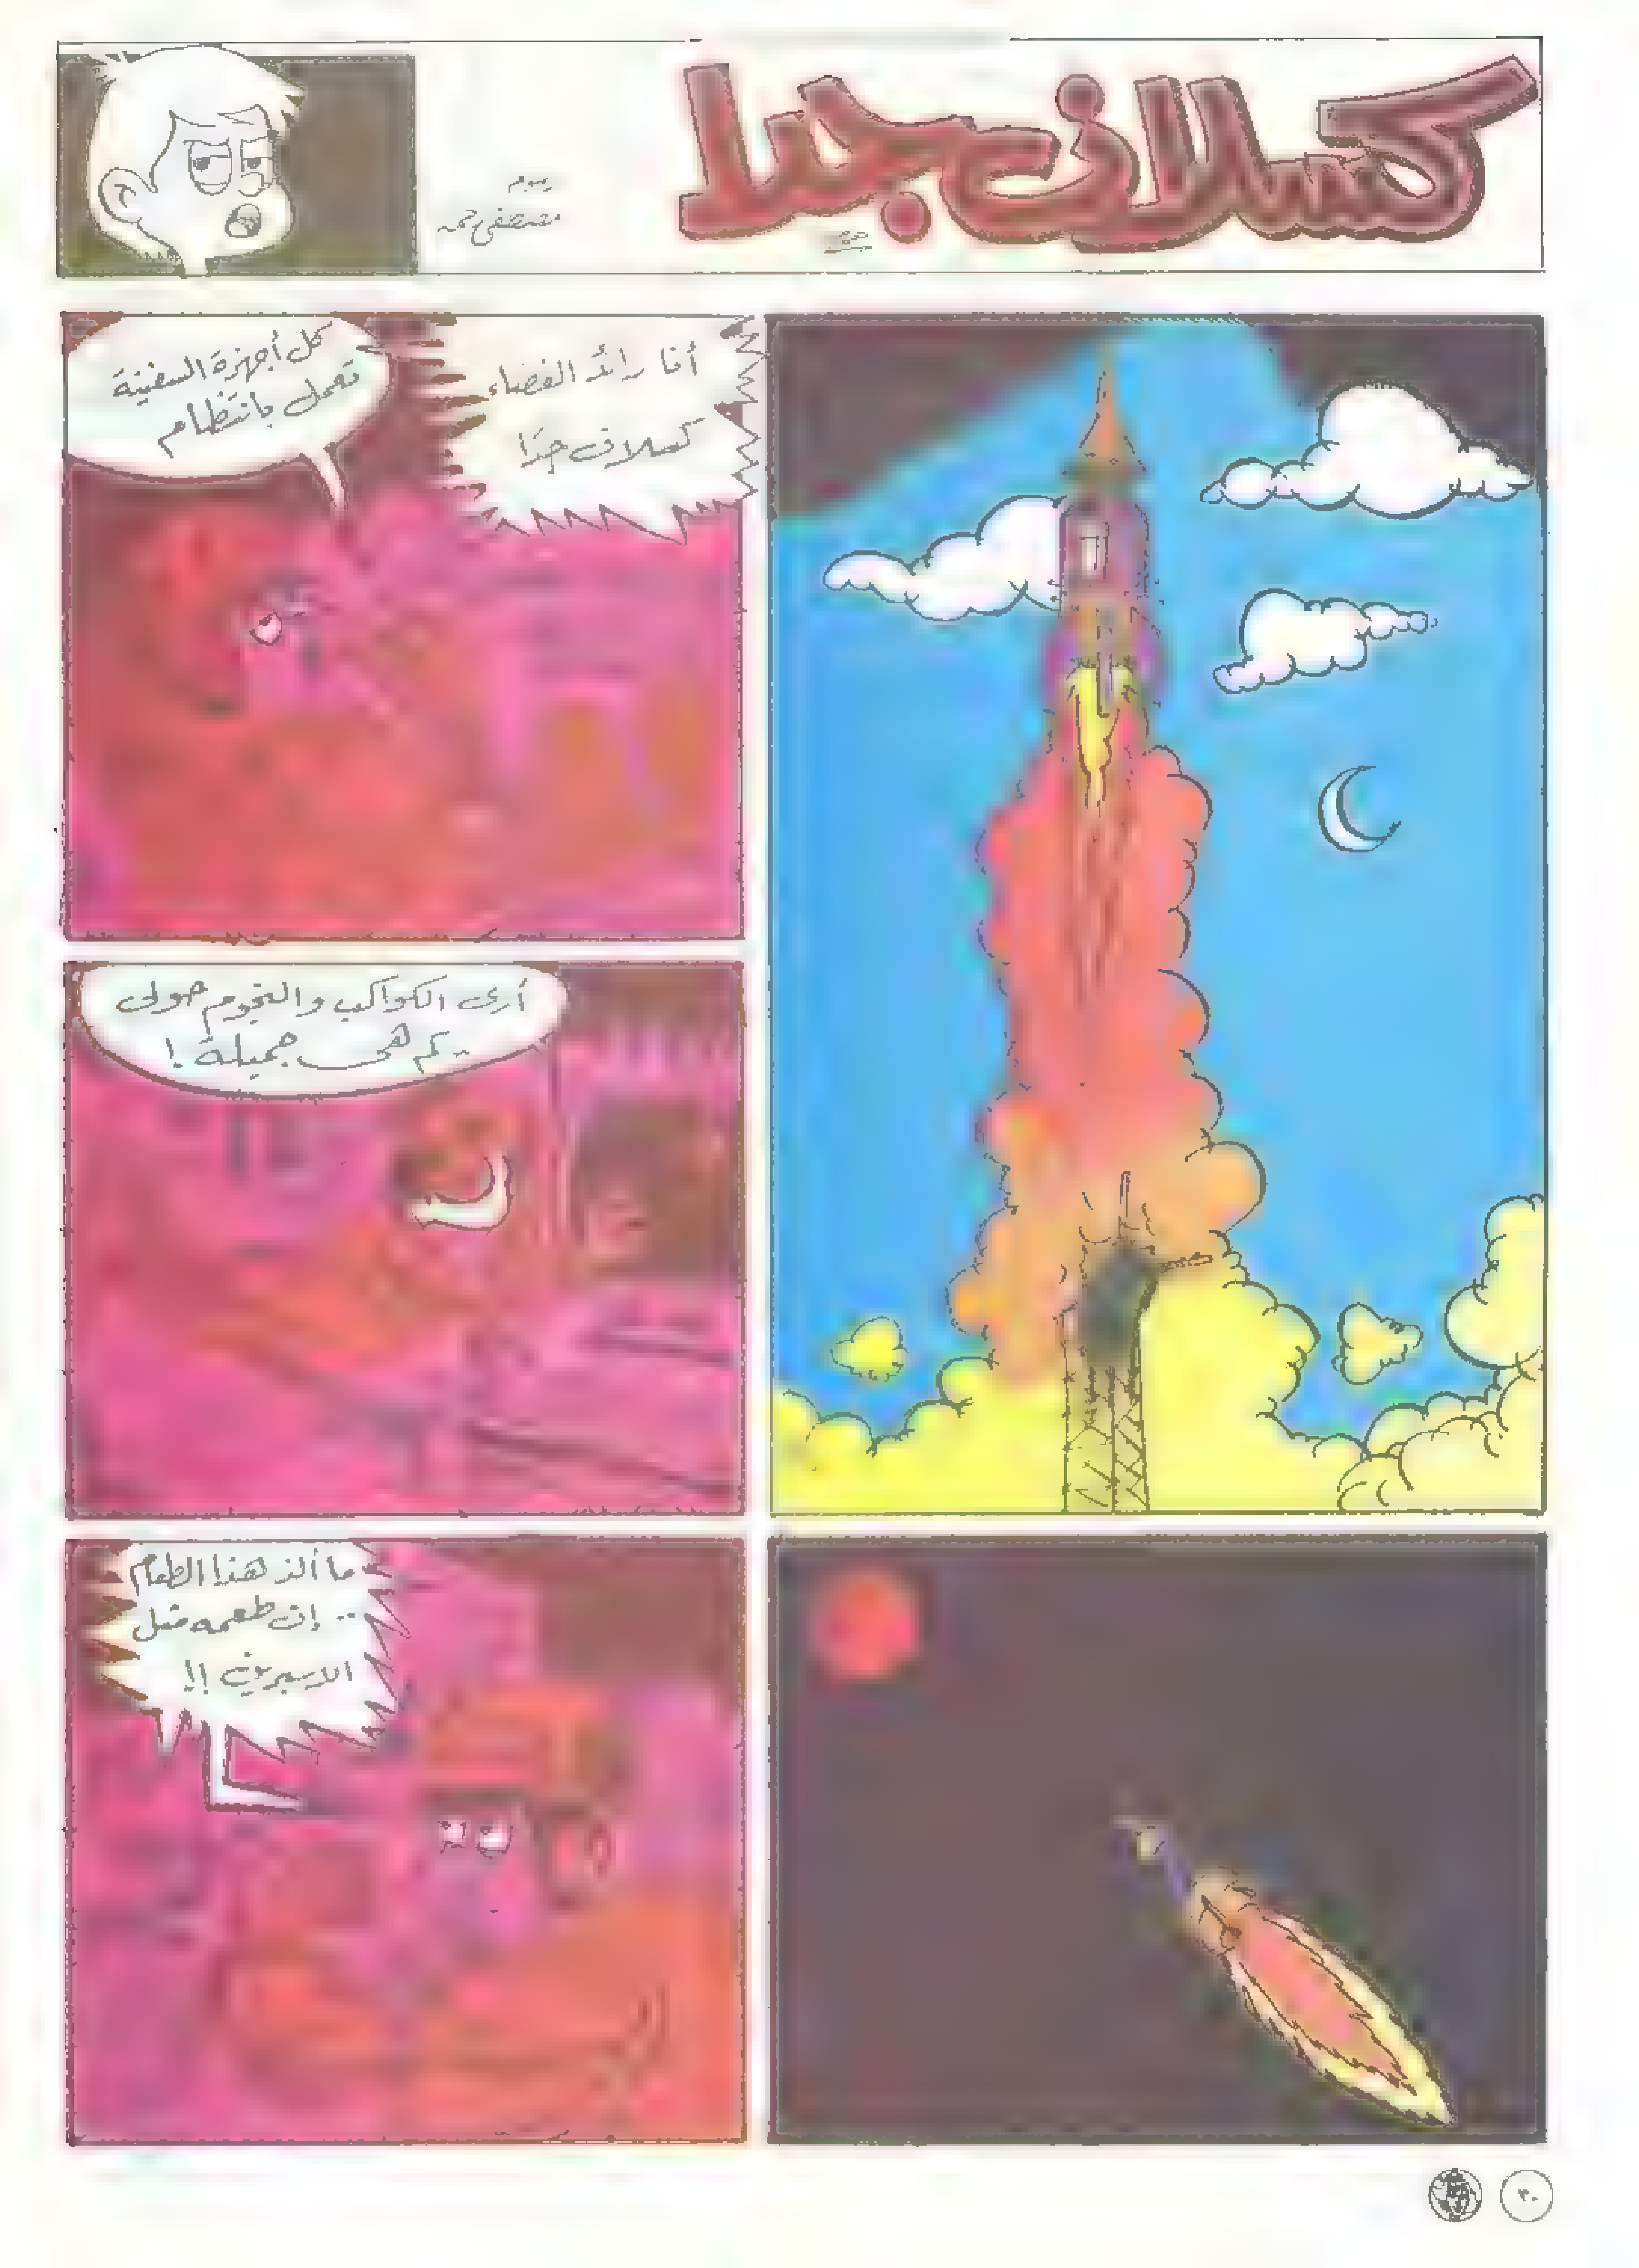 كسلان جدا
رسوم
مصطفى
أنا رائد الفضاء
كسلان جدًا
كل أجهزة السفينة
تعمل بانتظام
أرى الكواكب والنجوم حولى
.. كم هى جميلة !
ما ألذ هذا الطعام
.. إن طعمه مثل
الاسبرين !!
٣٠